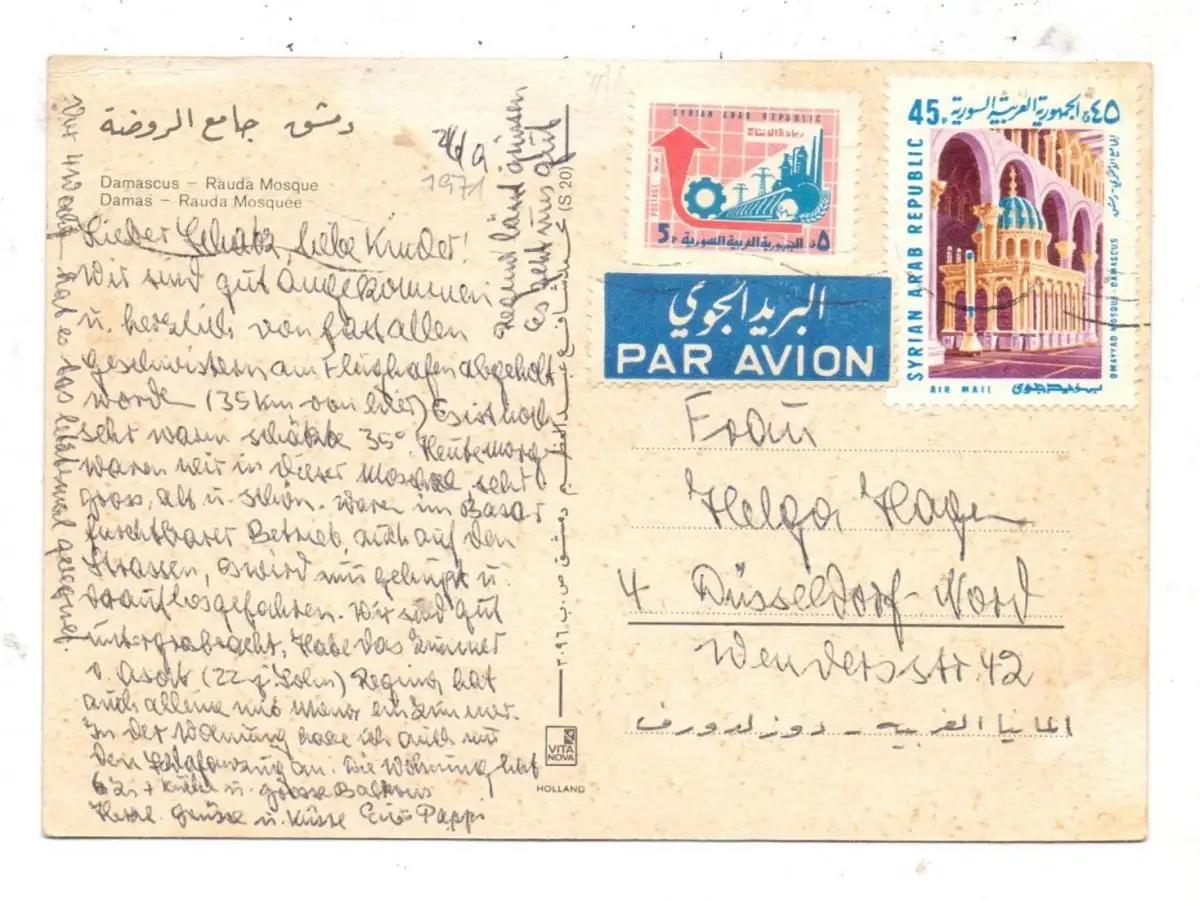 دمشق جامع الروضة
Damascus – Rauda Mosque
Damas – Rauda Mosquée
1971
Lieber Schatz, liebe Kinder!
Wir sind gut angekommen
u. herzlich von fast allen
Geschwistern am Flughafen abgeholt
worden (35 km von hier) Es ist noch
sehr warm schätze 35°. Heute Morg.
waren wir in dieser Moschee, sehr
gross, alt u. schön. Waren im Basar
furchtbarer Betrieb, auch auf den
Strassen, es wird nur gehupt u.
drauflosgefahren. Wir sind gut
untergebracht. Habe das Zimmer
v. (22 j. Sohn) Regina hat
auch alleine mit ein Zimmer.
In der Wohnung habe ich auch nur
den Schlafanzug an. Die Wohnung hat
6 Zi + Küche u. grosse Balkons
Herzl. Grüsse u. Küsse Euer Pappi
Vor 4 hat es das letztemal geregnet.
Regina lässt grüssen
es geht uns gut
(S 20)
دمشق ص.ب. ٣٠٩٦
VITA
NOVA
HOLLAND
SYRIAN ARAB REPUBLIC
زيادة الانتاج
POSTAGE
بريد
5 P الجمهورية العربية السورية ٥ ق
45 P الجمهورية العربية السورية ٤٥ ق
SYRIAN ARAB REPUBLIC
الجامع الأموي - دمشق
OMAYYAD MOSQUE - DAMASCUS
AIR MAIL بريد جوي
البريد الجوي
PAR AVION
Frau
Helga Hagen
4 Düsseldorf-Nord
Wendersstr. 42
المانيا الغربيه - دوزلدورف